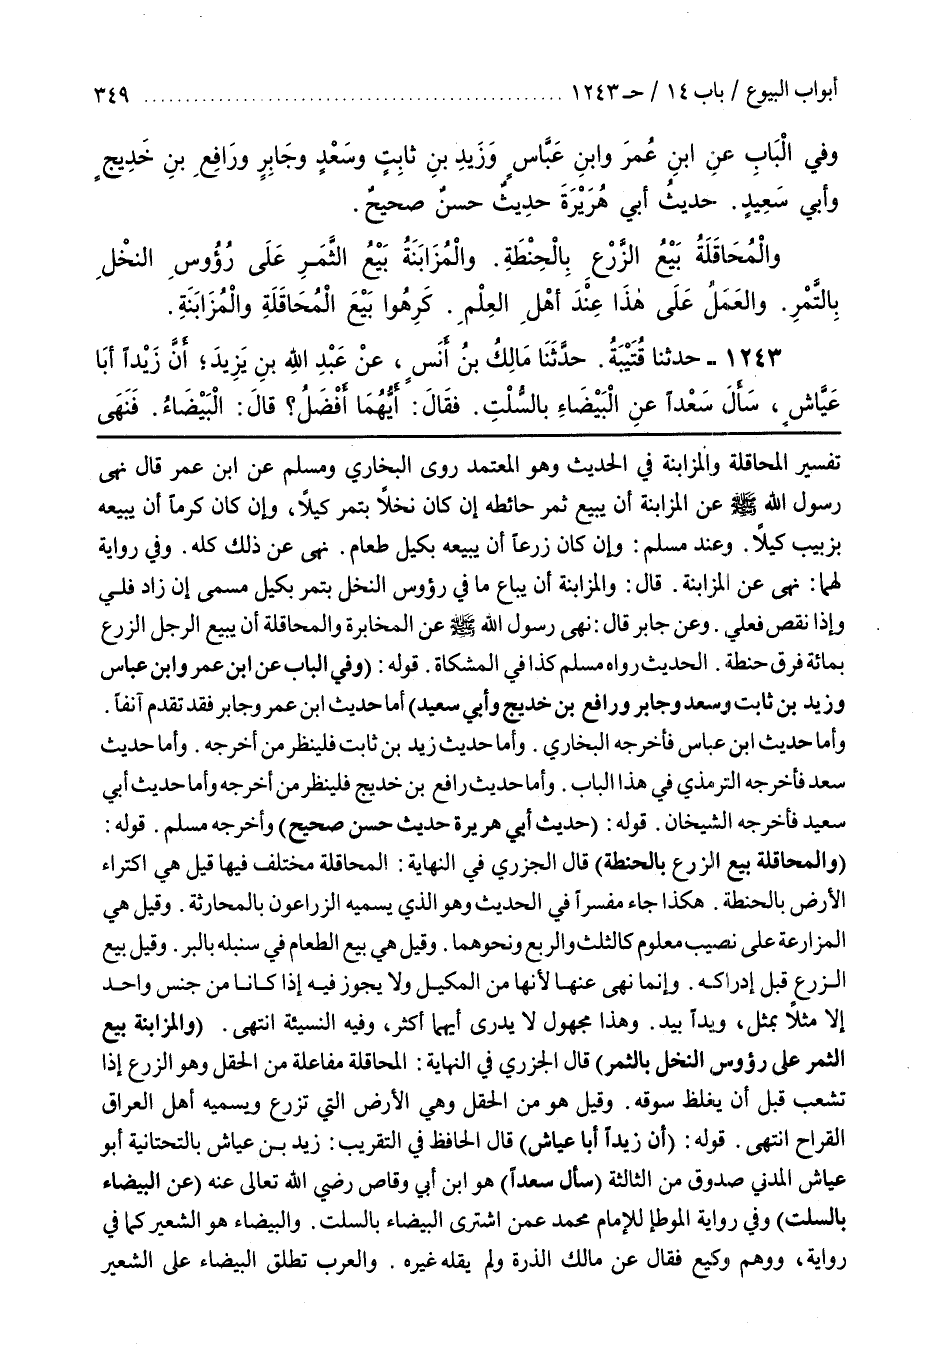 أبواب البيوع / باب ١٤ / حـ ١٢٤٣ ........................................ ٣٤٩
وفي الْبَابِ عنِ ابنِ عُمَرَ وابنِ عَبَّاسٍ وَزَيدِ بنِ ثابِتٍ وسَعْدٍ وجَابِرٍ ورَافِعِ بنِ خَدِيجٍ
وأبي سَعِيدٍ. حديثُ أبي هُرَيْرَةَ حدِيثٌ حسنٌ صحيحٌ.
والْمُحَاقَلَةُ بَيْعُ الزَّرْعِ بِالْحِنْطَةِ. والْمُزَابَنَةُ بَيْعُ الثَّمَرِ عَلَى رُؤُوسِ النخْلِ
بِالتَّمْرِ. والعَمَلُ عَلَى هٰذَا عِنْدَ أهْلِ العِلْمِ. كَرِهُوا بَيْعَ الْمُحَاقَلَةِ والْمُزَابَنَةِ.
١٢٤٣ - حدثنا قُتَيْبَةُ. حدَّثَنَا مَالِكُ بنُ أَنَسٍ، عنْ عَبْدِ اللهِ بنِ يَزِيدَ؛ أَنَّ زَيْداً أبَا
عَيَّاشٍ، سَأَلَ سَعْداً عنِ الْبَيْضَاءِ بالسُّلْتِ. فقَالَ: أَيُّهُمَا أَفْضَلُ؟ قالَ: الْبَيْضَاءُ. فَنَهَى
تفسير المحاقلة والمزابنة في الحديث وهو المعتمد روى البخاري ومسلم عن ابن عمر قال نهى
رسول الله ﷺ عن المزابنة أن يبيع ثمر حائطه إن كان نخلاً بتمر كيلاً، وإن كان كرماً أن يبيعه
بزبيب كيلاً. وعند مسلم: وإن كان زرعاً أن يبيعه بكيل طعام. نهى عن ذلك كله. وفي رواية
لهما: نهى عن المزابنة. قال: والمزابنة أن يباع ما في رؤوس النخل بتمر بكيل مسمى إن زاد فلي
وإذا نقص فعلي. وعن جابر قال: نهى رسول الله ﷺ عن المخابرة والمحاقلة أن يبيع الرجل الزرع
بمائة فرق حنطة. الحديث رواه مسلم كذا في المشكاة. قوله: (وفي الباب عن ابن عمر وابن عباس
وزيد بن ثابت وسعد وجابر ورافع بن خديج وأبي سعيد) أما حديث ابن عمر وجابر فقد تقدم آنفاً.
وأما حديث ابن عباس فأخرجه البخاري. وأما حديث زيد بن ثابت فلينظر من أخرجه. وأما حديث
سعد فأخرجه الترمذي في هذا الباب. وأما حديث رافع بن خديج فلينظر من أخرجه وأما حديث أبي
سعيد فأخرجه الشيخان. قوله: (حديث أبي هريرة حديث حسن صحيح) وأخرجه مسلم. قوله:
(والمحاقلة بيع الزرع بالحنطة) قال الجزري في النهاية: المحاقلة مختلف فيها قيل هي اكتراء
الأرض بالحنطة. هكذا جاء مفسراً في الحديث وهو الذي يسميه الزراعون بالمحارثة. وقيل هي
المزارعة على نصيب معلوم كالثلث والربع ونحوهما. وقيل هي بيع الطعام في سنبله بالبر. وقيل بيع
الزرع قبل إدراكه. وإنما نهى عنها لأنها من المكيل ولا يجوز فيه إذا كانا من جنس واحد
إلا مثلاً بمثل، ويداً بيد. وهذا مجهول لا يدرى أيهما أكثر، وفيه النسيئة انتهى. (والمزابنة بيع
الثمر على رؤوس النخل بالثمر) قال الجزري في النهاية: المحاقلة مفاعلة من الحقل وهو الزرع إذا
تشعب قبل أن يغلظ سوقه. وقيل هو من الحقل وهي الأرض التي تزرع ويسميه أهل العراق
القراح انتهى. قوله: (أن زيداً أبا عياش) قال الحافظ في التقريب: زيد بن عياش بالتحتانية أبو
عياش المدني صدوق من الثالثة (سأل سعداً) هو ابن أبي وقاص رضي الله تعالى عنه (عن البيضاء
بالسلت) وفي رواية الموطإ للإمام محمد عمن اشترى البيضاء بالسلت. والبيضاء هو الشعير كما في
رواية، ووهم وكيع فقال عن مالك الذرة ولم يقله غيره. والعرب تطلق البيضاء على الشعير